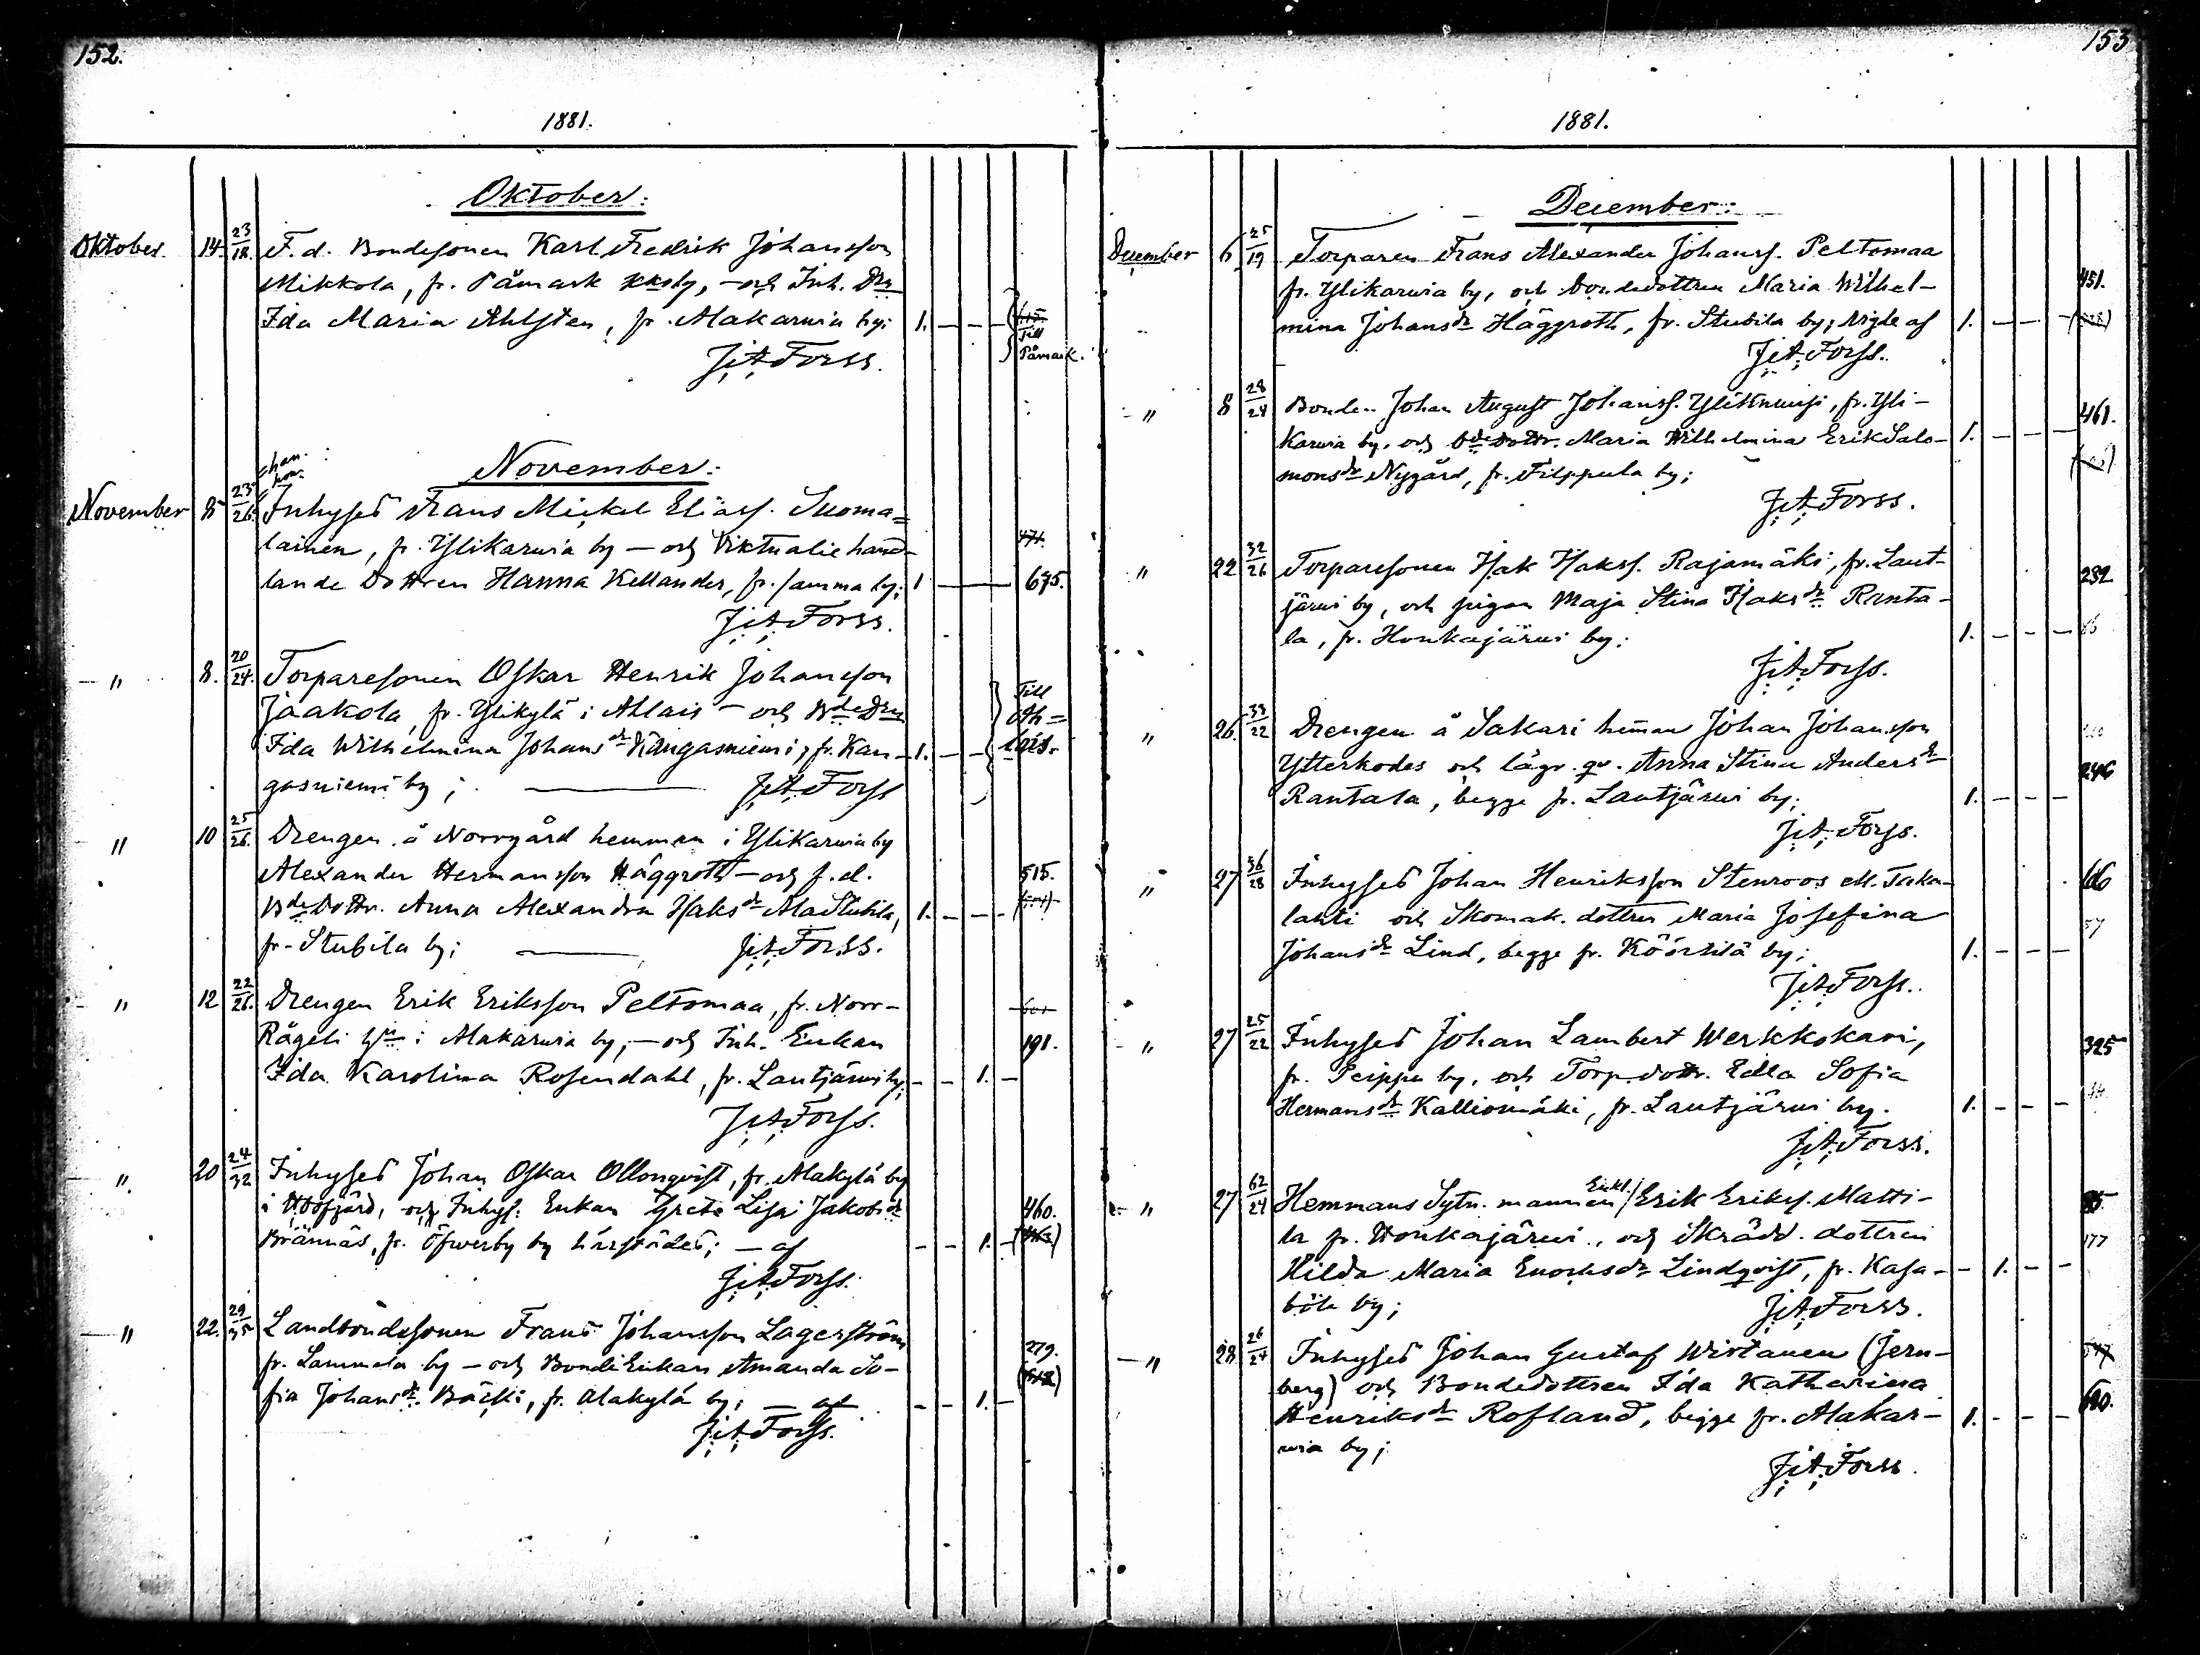 152.
1881.
Oktober:
Oktober. 14. 23/18. F. d. Bondesonen Karl Fredrik Johansson
Mikkola, fr. Påmark kksby, — och Inh. Drn
Ida Maria Ahlsten, fr. Alakarvia by; 1. — — —
Till
Påmark.
J. A. Forss.
November:
November 8 23/26. Inhyses Frans Mickel Eliass. Suoma=
lainen, fr. Ylikarvia by — och Viktualiehand- 471.
lande Dottren Hanna Kellander, fr. samma by; 1 — 675.
J. A. Forss.
— " 8. 20/24. Torparesonen Oskar Henrik Johansson Till
Jaakola, fr. Ylikylä i Ahlais — och Bde Drn Ah=
Ida Wilhelmina Johansdr Kangasniemi, fr. Kan- 1. — — lais.
gasniemi by; — J. A. Forss
" 10 25/26. Drengen å Norrgård hemman i Ylikarvia by
Alexander Hermansson Häggroth — och f. d. 515.
Bde Dottr. Anna Alexandra Isaksdr AlaStubila, 1. — — —
fr. Stubila by; — J. A. Forss.
— " 12 22/26. Drengen Erik Eriksson Peltomaa, fr. Norr-
Rågeli hmn i Alakarvia by, — och Inh. Enkan 191.
Ida Karolina Rosendahl, fr. Lautjärvi by; — — 1. —
J. A. Forss.
" 20 24/32 Inhyses Johan Oskar Ollonqvist, fr. Alakylä by
i Hvitisfjärd, och Inhys. Enkan Greta Lisa Jakobsdr 460.
Brännäs, fr. Öfwerby by härstädes; — af — — 1. —
J. A. Forss.
— " 22. 29/35 Landbondesonen Frans Johansson Lagerström
fr. Lammela by — och BondeEnkan Amanda So- 279.
fia Johansdr Bäcki, fr. Alakylä by; — af — — 1. — (512)
J. A. Forss.
153
1881.
December:
December 6 25/19 Torparen Frans Alexander Johanss. Peltomaa
fr. Ylikarvia by, och bondedottren Maria Wilhel- 451.
mina Johansdr Häggroth, fr. Stubila by; vigde af 1. — — —
J. A. Forss.
— " 8 28/24 Bonden Johan August Johanss. Ylitknuusi, fr. Yli-
karvia by, och bdedottr. Maria Wilhelmina ErikSalo- 1. — — — 461.
monsdr Nygård, fr. Filppula by;
J. A. Forss.
" 22 32/26 Torparesonen Isak Isakss. Rajamäki, fr. Laut-
järvi by, och pigan Maja Stina Isaksdr Ranta- 232.
la, fr. Honkajärvi by; 1. — — —
J. A. Forss.
" 26. 33/22 Drengen å Sakari heman Johan Johansson
Ytterkodes och lägr. qv. Anna Stina Andersdr 246
Rantala, begge fr. Lautjärvi by; 1. — — —
J. A. Forss.
" 27 36/28 Inhyses Johan Henriksson Stenroos ell. Taka- 66
lahti och Skomak. dottren Maria Josefina 57
Johansdr Lind, begge fr. Köörtilä by; 1. — — —
J. A. Forss.
— " 27 25/22 Inhyses Johan Lambert Werkkokari,
fr. Peippu by, och Torp. dottr. Edla Sofia 325
Hermansdr Kalliomäki, fr. Lautjärvi by. 1. — — —
J. A. Forss.
— " 27 62/24 Hemmans Sytn. mannen Enkl. / Erik Erikss. Matti- 85.
la fr. Honkajärvi, och Skrädd. dottren 177
Hilda Maria Enochsdr Lindqvist, fr. Kasa- — 1. — —
böle by; J. A. Forss.
— " 28. 26/24 Inhyses Johan Gustaf Wirtanen (Jern- 547
berg) och Bondedottren Ida Katharina
Henriksdr Rosland, begge fr. Alakar- 1. — — — 680.
via by;
J. A. Forss.